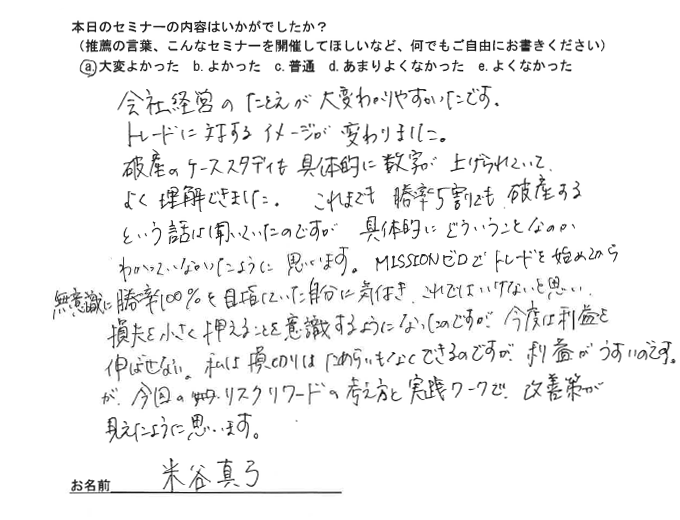 本日のセミナーの内容はいかがでしたか？
（推薦の言葉、こんなセミナーを開催してほしいなど、何でもご自由にお書きください）
a.大変よかった b.よかった c.普通 d.あまりよくなかった e.よくなかった
会社経営のたとえが大変わかりやすかったです。
トレードに対するイメージが変わりました。
破産のケーススタディも具体的に数字が上げられていて、
よく理解できました。これまでも勝率5割でも破産する
という話は聞いていたのですが具体的にどういうことなのか
わかっていなかったように思います。MISSIONゼロでトレードを始めてから
無意識に勝率100%を目指していた自分に気付き、これではいけないと思い、
損失を小さく押えることを意識するようになったのですが、今度は利益を
伸ばせない。私は損切りはためらいもなくできるのですが、利益がうすいのです。
が、今回のリスクリワードの考え方と実践ワークで、改善策が
見えたように思います。
お名前 米谷真弓